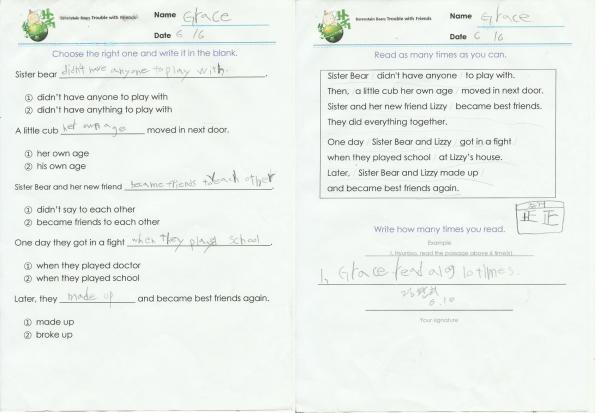 Berenstain Bears Trouble with Friends
Name Grace
Date 6 /6
Choose the right one and write it in the blank.
Sister bear didn't have anyone to play with.
① didn't have anyone to play with
② didn't have anything to play with
A little cub her own age moved in next door.
① her own age
② his own age
Sister Bear and her new friend became friends to each other
① didn't say to each other
② became friends to each other
One day they got in a fight when they played school.
① when they played doctor
② when they played school
Later, they made up and became best friends again.
① made up
② broke up
Berenstain Bears Trouble with Friends
Name Grace
Date 6 /6
Read as many times as you can.
Sister Bear / didn't have anyone / to play with.
Then, / a little cub her own age / moved in next door.
Sister and her new friend Lizzy / became best friends.
They did everything together.
One day / Sister Bear and Lizzy / got in a fight /
when they played school / at Lizzy's house.
Later, / Sister Bear and Lizzy made up /
and became best friends again.
正
Write how many times you read.
Example
I, Hyunsoo, read the passage above 6 time(s).
I, Grace read 10 times.
6.10
Your signature